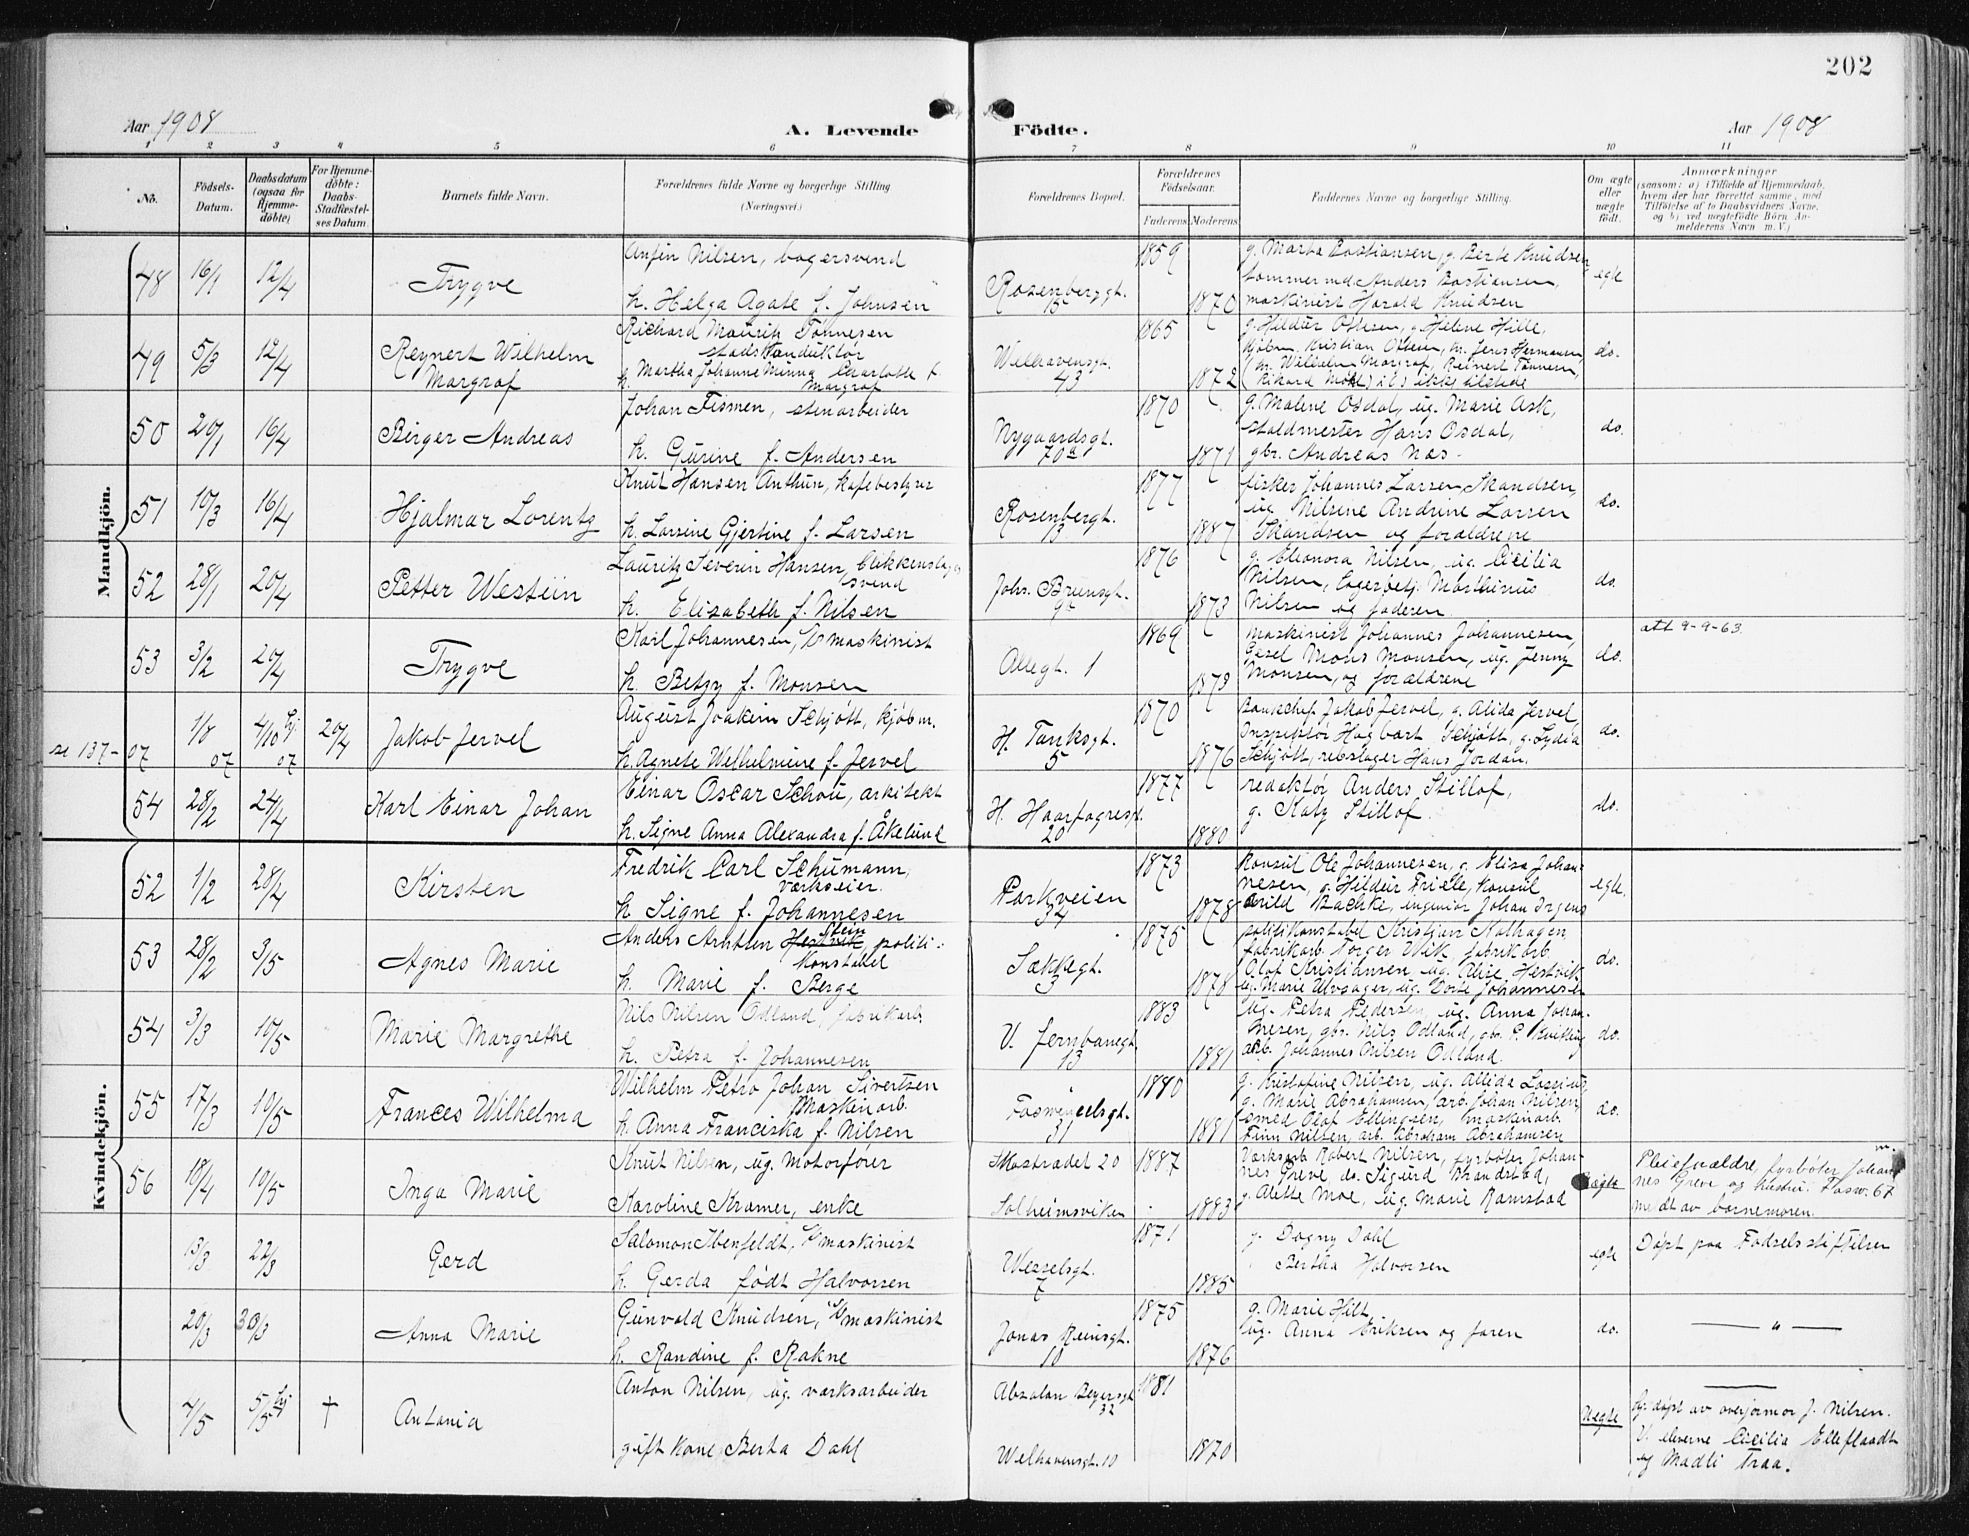 202
Aar 1908
A. Levende
Födte.
Aar 1908
1 2 3 4 5 6 7 8 9 10 11
No.
Födsels-
Datum.
Daabsdatum
(ogsaa for
Hjemme-
döbte)
For Hjemme-
döbte:
Daabs-
Stadfæstel-
ses Datum.
Barnets fulde Navn.
Forældrenes fulde Navne og borgerlige Stilling
(Næringsvei.)
Forældrenes Bopæl.
Forældrenes
Födselsaar.
Faderens
Moderens
Faddernes Navne og borgerlige Stilling.
Om ægte
eller
uægte
födt.
Anmærkninger
(saasom: a) i Tilfælde af Hjemmedaab,
hvem der har forrettet samme, med
Tilföielse af to Daabsvidners Navne,
og b) ved uægtefödte Börn An-
melderens Navn m. V.)
Mandkjön.
48 16/1 12/4 Trygve
Anfin Nilsen, bagersvend
h. Helga Agate f. Johnsen
Rosenberggt.
15
1859
1870
g. Marta Bastiansen, g. Berte Knudsen
tømmermd. Anders Bastiansen,
maskinist Harald Knudsen
egte
49 5/3 12/4 Reynert Wilhelm
Margraf
Richard Mauritz Tönnesen
stadskonduktör
h. Martha Johanne Minna Charlotte f.
Margraf
Welhavensgt.
43
1865
1872
g. Hildur Ottesen, g. Helene Hille,
kjøbm. Kristian Ottesen, hr. Jens Hermansen
(hr. Wilhelm Margraf, Reinert Tönnesen,
Rikard Mohl) ikke tilstede
do.
50 20/1 16/4 Birger Andreas
Johan Fismen, stenarbeider
h. Gurine f. Andersen
Nygaardsgt.
70a
1870
1871
g. Malene Osdal, ug. Marie Ask,
staldmester Hans Osdal,
gbr. Andreas Næs.
do.
51 10/3 16/4 Hjalmar Lorentz
Knut Hansen Anthun, kafebestyrer
h. Larsine Gjertine f. Larsen
Rosenberggt.
13
1877
1887
fisker Johannes Larsen Skandsen,
ug. Nilsine Andrine Larsen
Skandsen og forældrene
do.
52 28/1 20/4 Petter Westein
Lauritz Severin Hansen, blikkenslager
svend
h. Elisabeth f. Nilsen
Johs. Brunsgt.
1876
1873
g. Eleonora Nilsen, ug. Cicilia
Nilsen, Marthinus
Nilsen og faderen.
do.
53 3/2 20/4 Trygve
Karl Johannesen, maskinist
h. Betzy f. Monsen
Allegt. 1
1869
1873
maskinist Johannes Johannesen,
Mons Monsen, ug. Jenny
Monsen, og forældrene
do.
att 9-9-63.
se 137-07 1/8 07 4/10 hj. 07 20/4 Jakob Jervel
August Joakim Schjött, kjöbm.
h. Agnete Welhelmine f. Jervel
H. Tanksgt.
5
1870
1876
Bankchef Jakob Jervel, g. Alida Jervel,
Inspektör Hagbart Schjött, g. Lydia
Schjött, rebslager Hans Jordan.
do.
54 28/2 24/4 Karl Einar Johan
Einar Oscar Schou, arkitekt
h. Signe Anna Alexandra f. Åkelund
H. Haarfagresgt.
20
1877
1880
redaktør Anders Stilloff,
g. Katy Stillof.
do.
Kvindekjön.
52 1/2 28/4 Kirsten
Fredrik Carl Schumann,
værkseier.
h. Signe f. Johannesen
Parkveien
34
1873
1878
Konsul Ole Johannesen, g. Elisa Johan-
nesen, g. Hildur Friele, konsul
Arild Bachke, ingeniør Johan Irgens
egte.
53 28/2 3/5 Agnes Marie
Anders Arnsten Hestvik Stein, politi-
konstabel
h. Marie f. Berge
Sækkegt.
3
1875
1878
politikonstabel Kristian Kalhagen,
fabrikarb. Torger Wik, fabrikarb.
Olaf Kristiansen, ug. Alice Hestvik
ug. Marie Ulvsager, ug. Dorte Johannesen
do.
54 3/3 10/5 Marie Margrethe
Nils Nilsen Odland, fabrikarb.
h. Petra f. Johannesen
V. Jernbanegt.
13
1883
1881
ug. Petra Pedersen, ug. Anna Johan-
nesen, gbr. Nils Odland, gbr. P. Kvitting
arb. Johannes Nilsen Odland.
do.
55 17/3 10/5 Frances Wilhelma
Wilhelm Petro Johan Sivertsen
Maskinarb.
h. Anna Franciska f. Nilsen
Foswinckelsgt.
31
1880
1881
g. Kristofine Nilsen, ug. Allida
g. Marie Abrahamsen, arb. Johan Nilsen,
smed Olaf Ellingsen, maskinarb.
Finn Nilsen, arb. Abraham Abrahamsen
do.
56 18/4 10/5 Inga Marie
Knut Nilsen, ug. Motorfører
Karoline Kramer, enke
Skostrædet 20
Solheimsviken
1887
1883
Værksarb. Robert Nilsen, fyrbøter Johan-
nes Greve do. Sigurd Brandstad,
g. Alette Moe, ug. Marie Ramstad
Uægte
Pleieforældre fyrbøter Johan-
nes Greve og hustru. Fosw. 67
meldt av barnemoren.
13/3 22/3 Gerd
Salomon Ibenfeldt, maskinist
h. Gerda født Halvorsen
Wesselsgt.
7
1871
1885
g. Dagny Dahl
Bertha Halvorsen
egte
Døpt paa Fødselsstiftelsen
20/3 30/3 Anna Marie
Gunvald Knudsen, maskinist
h. Randine f. Rakne
Jonas Reinsgt.
10
1875
1876
g. Marie Hilt
ug. Anna Eriksen og faren
do.
— " —
4/5 5/5 hj † Antonia
Anton Nilsen, ug. værksarbeider
gift kone Berta Dahl
Absalon Beyersgt
32
Welhavensgt. 10
1881
1870
Uegte
Hj. døpt av overjormor J. Nilsen.
V. eleverne Cicilia Elleflaadt
og Madli Traa.